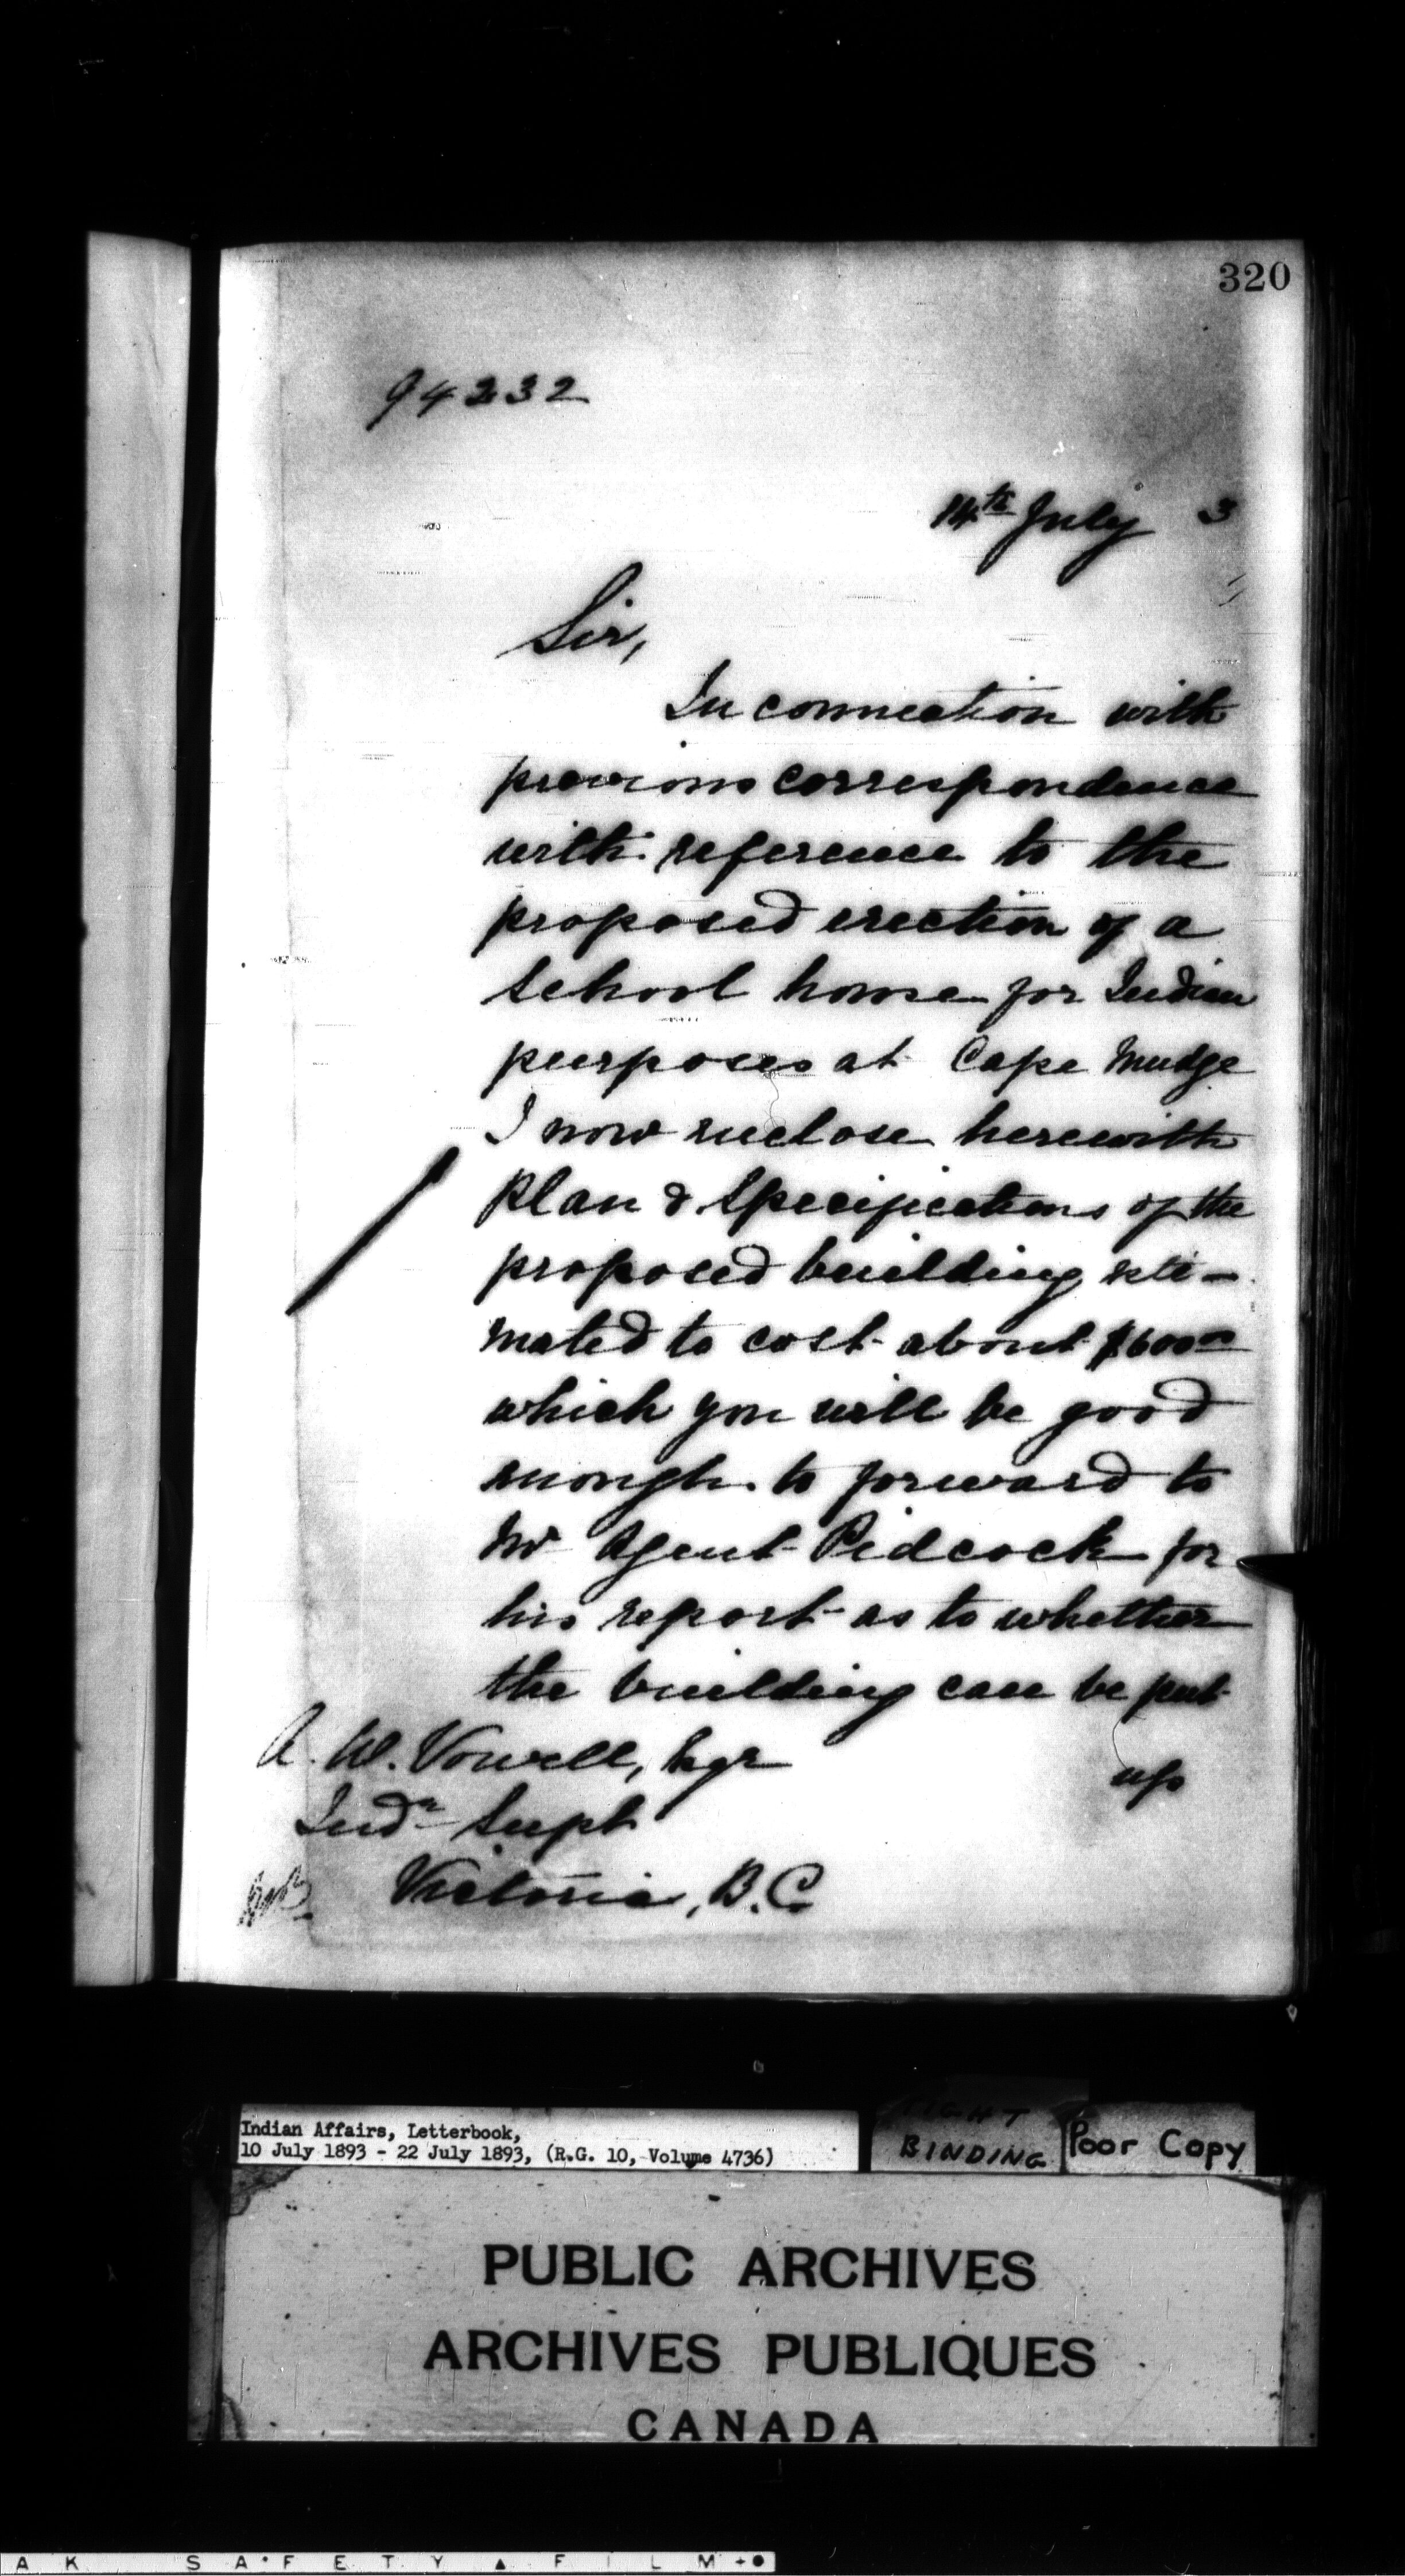 320
94232
14th July 3
Sir,
In connection with
previous correspondence
with reference to the
proposed erection of a
school house for Indian
purposes at Cape Mudge
I now enclose herewith
plan & specifications of the
proposed building esti-
mated to cost about $600.00
which you will be good
enough to forward to
Mr Agent Pidcock for
his report as to whether
the building can be put
up
A. W. Vowell, Esqr
Indn Supt
Victoria, B.C.
Indian Affairs, Letterbook,
10 July 1893 - 22 July 1893, (R.G. 10, Volume 4736)
TIGHT
BINDING
Poor Copy
PUBLIC ARCHIVES
ARCHIVES PUBLIQUES
CANADA
AK SAFETY FILM